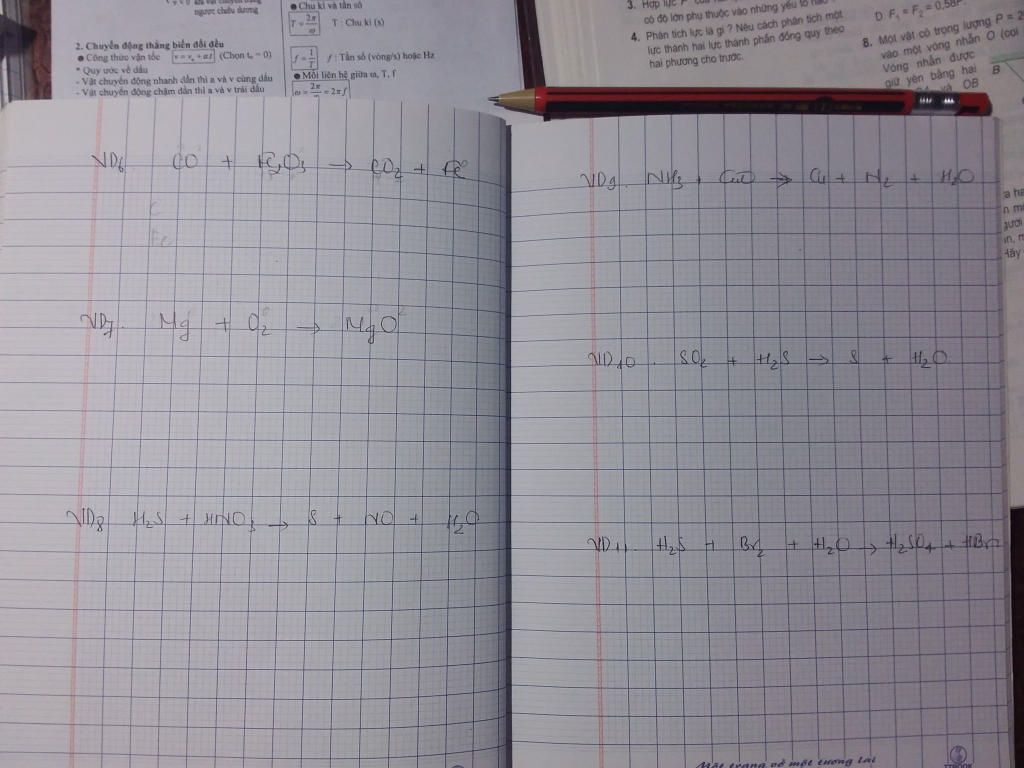 ngược chiều dương
2. Chuyển động thẳng biến đổi đều
● Công thức vận tốc v = v₀ + at (Chọn t₀ = 0)
* Quy ước về dấu
- Vật chuyển động nhanh dần thì a và v cùng dấu
- Vật chuyển động chậm dần thì a và v trái dấu
● Chu kì và tần số
T = 2π/ω T : Chu kì (s)
f = 1/T f : Tần số (vòng/s) hoặc Hz
● Mối liên hệ giữa ω, T, f
ω = 2π/T = 2πf
3. Hợp lực
có độ lớn phụ thuộc vào những yếu tố nào
4. Phân tích lực là gì ? Nêu cách phân tích một
lực thành hai lực thành phần đồng quy theo
hai phương cho trước.
D. F₁ = F₂ = 0,58P
8. Một vật có trọng lượng P = 2
vào một vòng nhẫn O (coi
Vòng nhẫn được
giữ yên bằng hai
và OB
B
VD6 CO + Fe₂O₃ → CO₂ + Fe
C
Fe
VD7. Mg + O₂ → MgO
VD8 H₂S + HNO₃ → S + NO + H₂O
VD9. NH₃ + CuO → Cu + N₂ + H₂O
VD10. SO₂ + H₂S → S + H₂O
VD11. H₂S + Br₂ + H₂O → H₂SO₄ + HBr
Một trang vở một tương lai